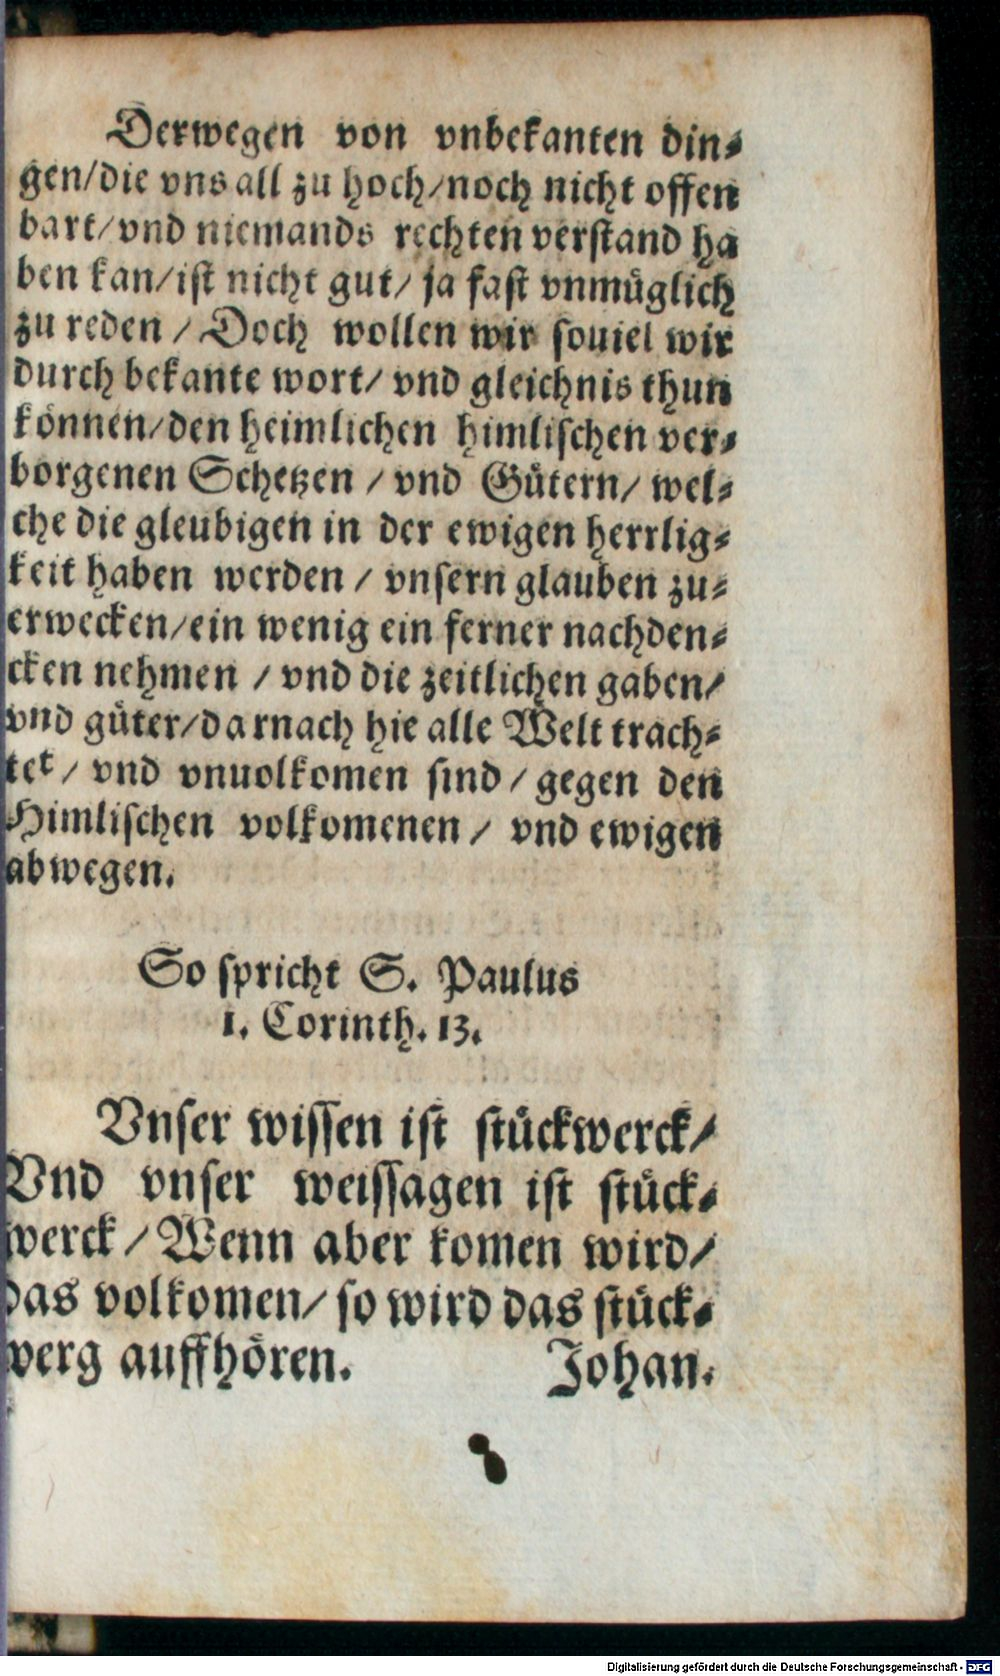 Derwegen von vnbekanten din⸗
gen/die vns all zu hoch/noch nicht offen
bart/vnd niemands rechten verstand ha
ben kan/ist nicht gut/ ja fast vnmüglich
zu reden / Doch wollen wir souiel wir
durch bekante wort/ vnd gleichnis thun
können/den heimlichen himlischen ver⸗
borgenen Schetzen / vnd Gütern/ wel⸗
che die gleubigen in der ewigen herrlig⸗
keit haben werden / vnsern glauben zu⸗
erwecken/ein wenig ein ferner nachden⸗
cken nehmen / vnd die zeitlichen gaben/
vnd güter/darnach hie alle Welt trach⸗
tet / vnd vnuolkomen sind / gegen den
Himlischen volkomenen / vnd ewigen
abwegen.
So spricht S. Paulus
1. Corinth. 13.
Vnser wissen ist stückwerck/
Vnd vnser weissagen ist stück⸗
werck / Wenn aber komen wird/
das volkomen/ so wird das stück⸗
werg auffhören. Johan.
Digitalisierung gefördert durch die Deutsche Forschungsgemeinschaft - DFG